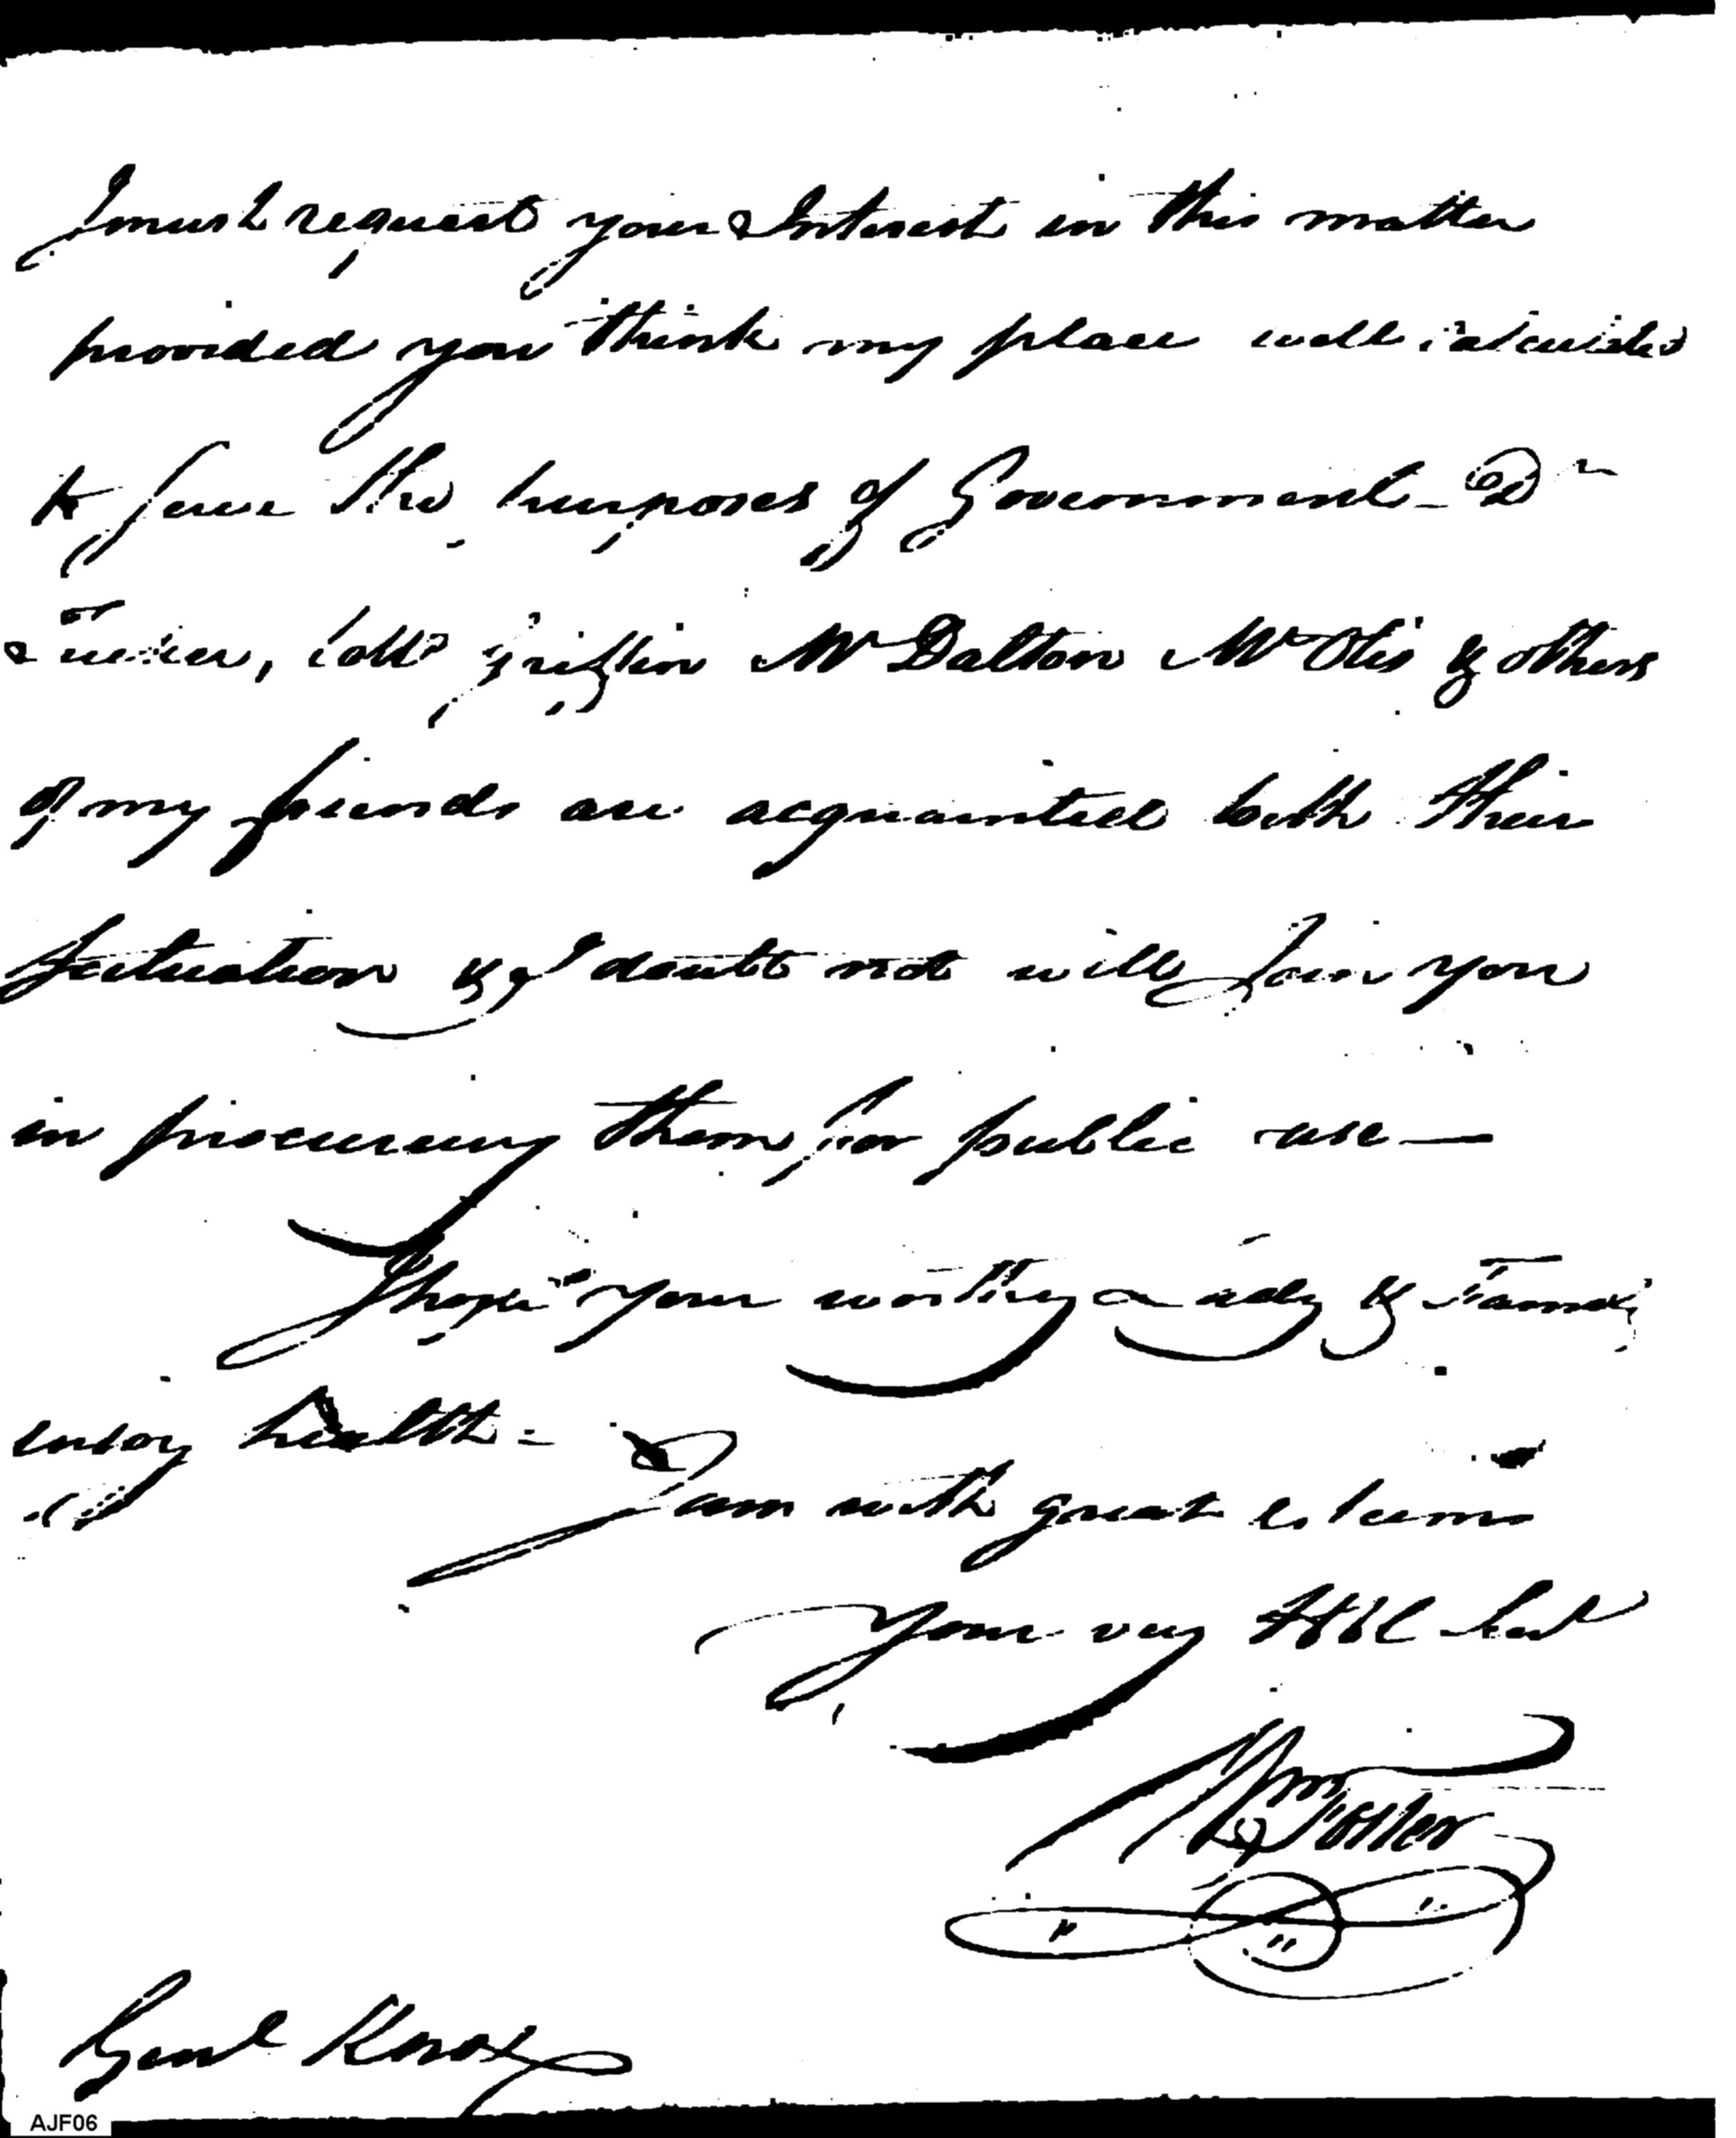 I must request your Interest in this matter
provided you think my place well calculated
to serve the purposes of Government - Dr
Tucker, Collo Griffin Mr Dalton Mr Otis & others
of my friends are acquainted with their
Scituation & I doubt not will Join you
in procuring them for public use —
I hope your worthy Lady & Family
enjoy health -
I am with great esteem
Your very Hble Sert
Wm Foster
Genl Knox
AJF06